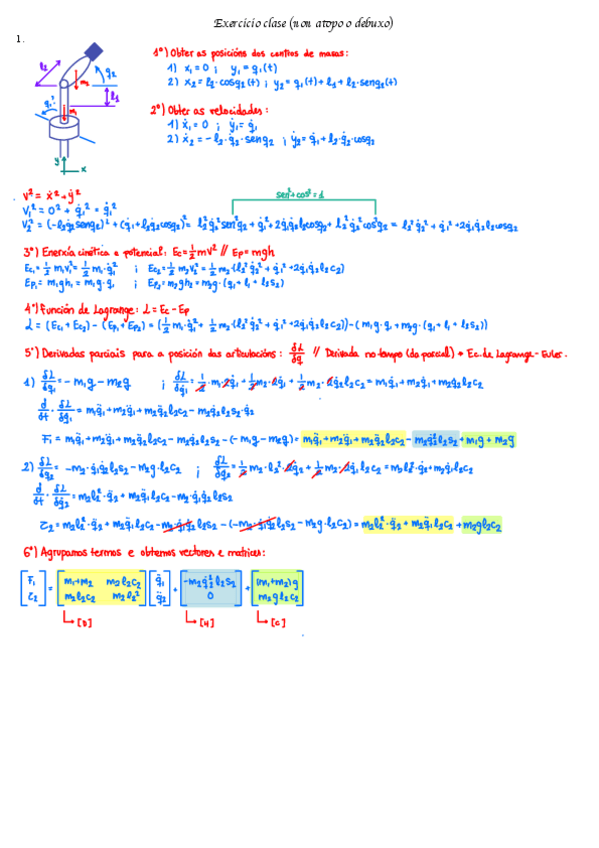 Exercicio clase (non atopo o debuxo)
1.
1º) Obter as posicións dos centros de masas:
1) x₁ = 0 ; y₁ = q₁(t)
2) x₂ = l₂·cosq₂(t) ; y₂ = q₁(t) + l₁ + l₂·senq₂(t)
l₂
q₂
m₂
l₁
q₁
m₁
y
x
2º) Obter as velocidades:
1) ẋ₁ = 0 ; ẏ₁ = q̇₁
2) ẋ₂ = -l₂·q̇₂·senq₂ ; ẏ₂ = q̇₁ + l₂·q̇₂·cosq₂
v² = ẋ² + ẏ²
sen² + cos² = 1
V₁² = 0² + q̇₁² = q̇₁²
V₂² = (-l₂q̇₂senq₂)² + (q̇₁ + l₂q̇₂cosq₂)² = l₂²q̇₂²sen²q₂ + q̇₁² + 2q̇₁q̇₂l₂cosq₂ + l₂²q̇₂²cos²q₂ = l₂²q̇₂² + q̇₁² + 2q̇₁q̇₂l₂cosq₂
3º) Enerxía cinética e potencial: Ec = ½mv² // Ep = mgh
Ec₁ = ½m₁v₁² = ½m₁·q̇₁² ; Ec₂ = ½m₂v₂² = ½m₂·(l₂²q̇₂² + q̇₁² + 2q̇₁q̇₂l₂c₂)
Ep₁ = m₁gh₁ = m₁g·q₁ ; Ep₂ = m₂gh₂ = m₂g·(q₁ + l₁ + l₂s₂)
4º) Función de Lagrange: L = Ec - Ep
L = (Ec₁ + Ec₂) - (Ep₁ + Ep₂) = (½m₁·q̇₁² + ½m₂·(l₂²q̇₂² + q̇₁² + 2q̇₁q̇₂l₂c₂)) - (m₁g·q₁ + m₂g·(q₁ + l₁ + l₂s₂))
5º) Derivadas parciais para a posición das articulacións: δL/δq // Derivada no tempo (da parcial) → Ec. de Lagrange-Euler.
1) δL/δq₁ = -m₁g - m₂g ; δL/δq̇₁ = ½·m₁·2q̇₁ + ½m₂·2q̇₁ + ½m₂·2q̇₂l₂c₂ = m₁q̇₁ + m₂q̇₁ + m₂q̇₂l₂c₂
d/dt · δL/δq̇₁ = m₁q̈₁ + m₂q̈₁ + m₂q̈₂l₂c₂ - m₂q̇₂l₂s₂·q̇₂
F₁ = m₁q̈₁ + m₂q̈₁ + m₂q̈₂l₂c₂ - m₂q̇₂²l₂s₂ - (-m₁g - m₂g) = m₁q̈₁ + m₂q̈₁ + m₂q̈₂l₂c₂ - m₂q̇₂²l₂s₂ + m₁g + m₂g
2) δL/δq₂ = -m₂·q̇₁q̇₂l₂s₂ - m₂g·l₂c₂ ; δL/δq̇₂ = ½m₂·l₂²·2q̇₂ + ½m₂·2q̇₁l₂c₂ = m₂l₂²·q̇₂ + m₂q̇₁l₂c₂
d/dt · δL/δq̇₂ = m₂l₂²·q̈₂ + m₂q̈₁l₂c₂ - m₂·q̇₁q̇₂l₂s₂
τ₂ = m₂l₂²·q̈₂ + m₂q̈₁l₂c₂ - m₂·q̇₁q̇₂l₂s₂ - (-m₂·q̇₁q̇₂l₂s₂ - m₂g·l₂c₂) = m₂l₂²·q̈₂ + m₂q̈₁l₂c₂ + m₂gl₂c₂
6º) Agrupamos termos e obtemos vectores e matrices:
[F₁] = [m₁+m₂ m₂l₂c₂] [q̈₁] + [-m₂q̇₂²l₂s₂] + [(m₁+m₂)g]
[τ₂] [m₂l₂c₂ m₂l₂²] [q̈₂] [0] [m₂gl₂c₂]
[D] [H] [C]